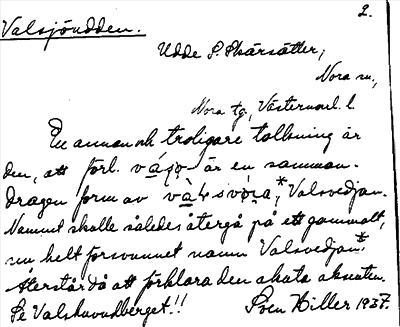 2.
Valsjöudden.
Udde S. Skärsätter,
Nora sn,
Nora tg, Västmanl. l.
En annan och troligare tolkning är
den, att förl. är en samman-
dragen form av Valsvedjan.
Namnet skulle således återgå på ett gammalt,
nu helt försvunnet namn Valsvedjan.*
Återstår då att förklara den akuta aksenten.
Se Valshuvudberget!! Sven Hiller 1937.